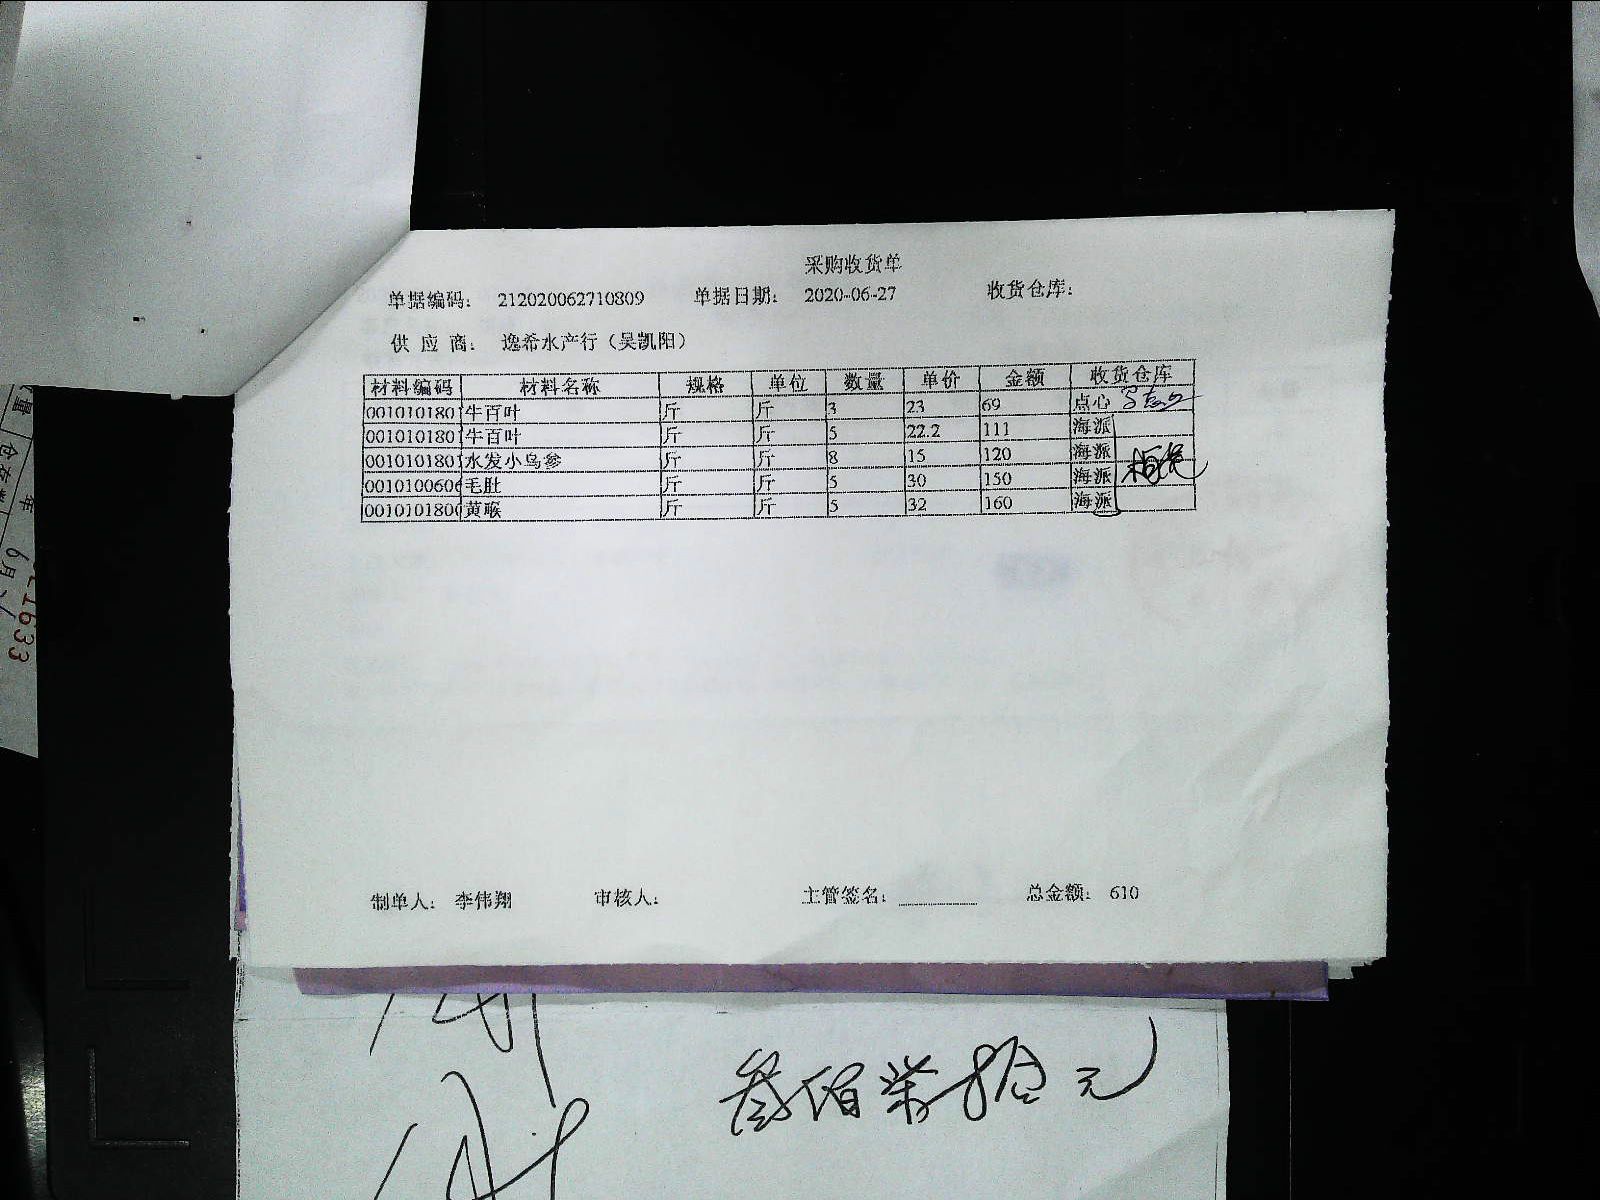 采购收货单
单据编码： 212020062710809 单据日期： 2020-06-27 收货仓库：
供 应 商： 逸希水产行（吴凯阳）
材料编码 材料名称 规格 单位 数量 单价 金额 收货仓库
001010180 牛百叶 斤 斤 3 23 69 点心
001010180 牛百叶 斤 斤 5 22.2 111 海派
001010180 水发小乌参 斤 斤 8 15 120 海派
001010060 毛肚 斤 斤 5 30 150 海派
001010180 黄喉 斤 斤 5 32 160 海派
制单人： 李伟翔 审核人： 主管签名： 总金额： 610
叁佰柒拾元
量
年
6月
1633